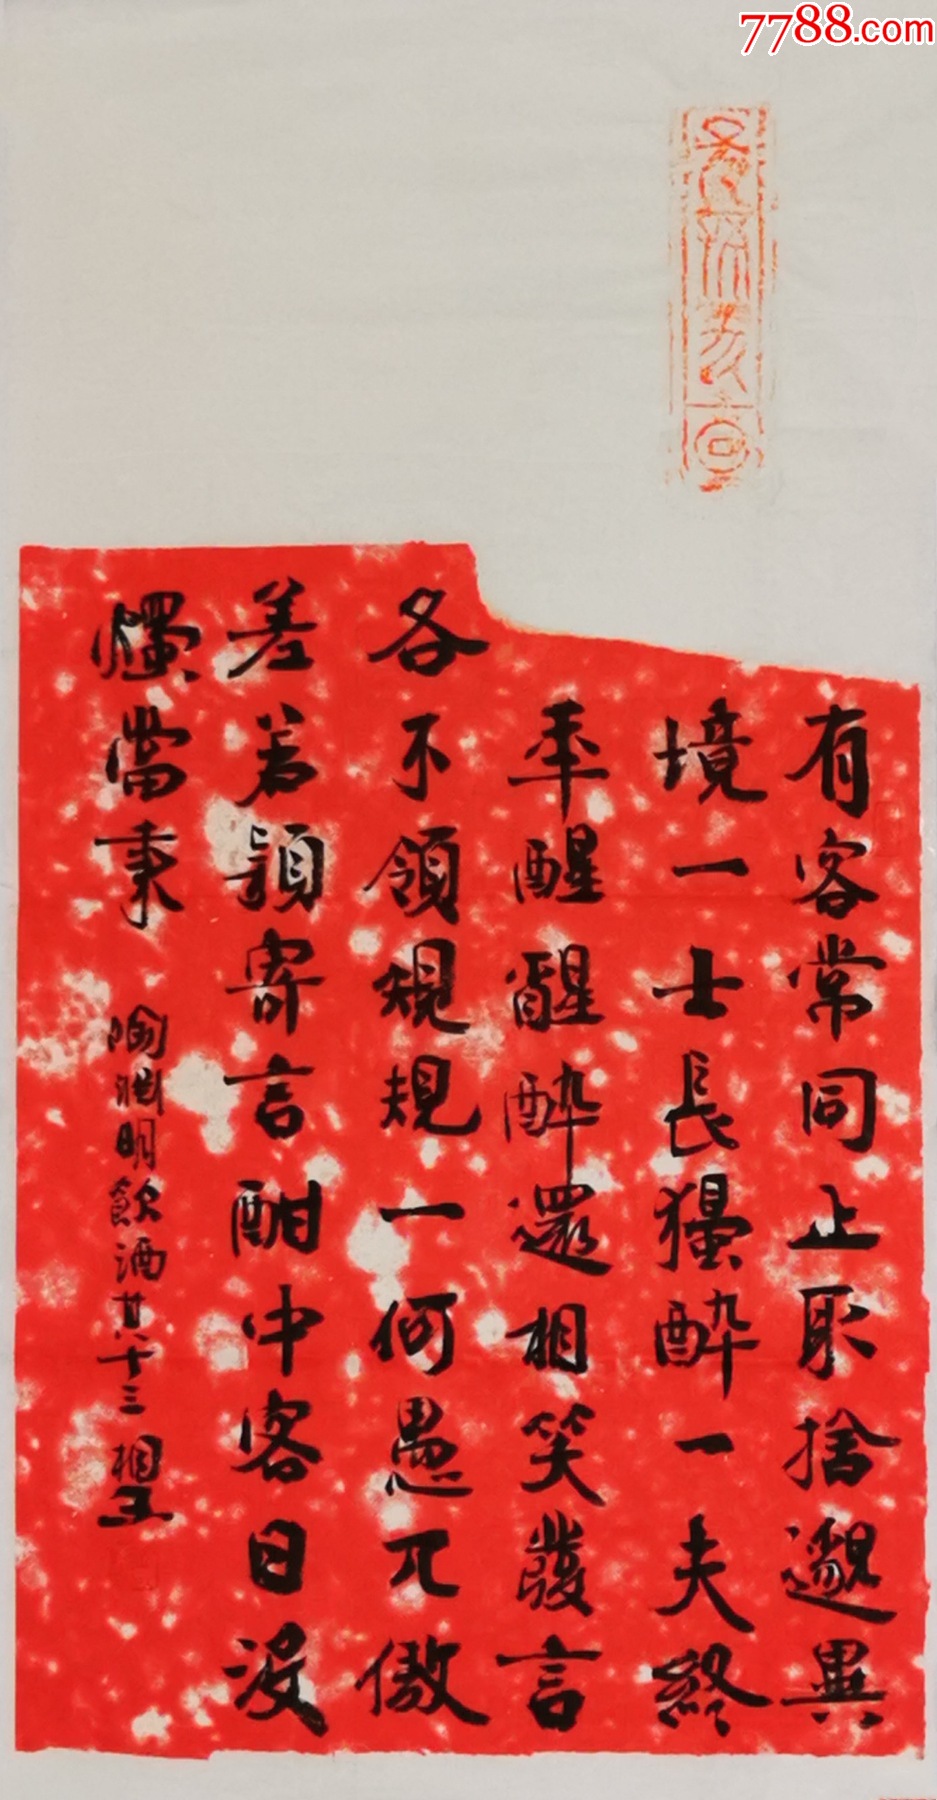 7788.com
有客常同止取捨邈異
境一士長獨醉一夫終
年醒醒醉還相笑發言
各不領規規一何愚兀傲
差若穎寄言酣中客日沒
燭當秉 陶淵明飲酒其十三 相